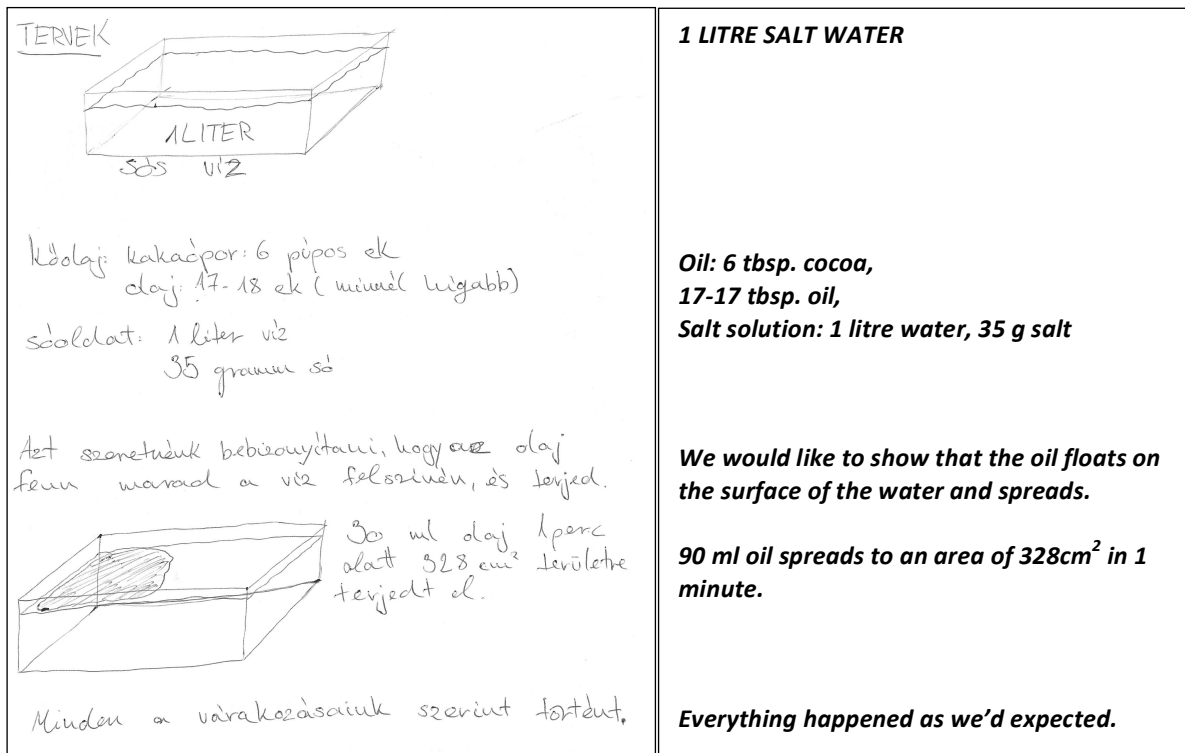 TERVEK
1 LITER
SÓS VÍZ
Kőolaj: kakaópor: 6 púpos ek
olaj: 17-18 ek (minnél hígabb)
sóoldat: 1 liter víz
35 gramm só
Azt szeretnénk bebizonyítani, hogy az olaj
fenn marad a víz felszínén, és terjed.
30 ml olaj 1 perc
alatt 328 cm² területre
terjedt el.
Minden a várakozásaink szerint történt.
1 LITRE SALT WATER
Oil: 6 tbsp. cocoa,
17-17 tbsp. oil,
Salt solution: 1 litre water, 35 g salt
We would like to show that the oil floats on
the surface of the water and spreads.
90 ml oil spreads to an area of 328cm² in 1
minute.
Everything happened as we'd expected.